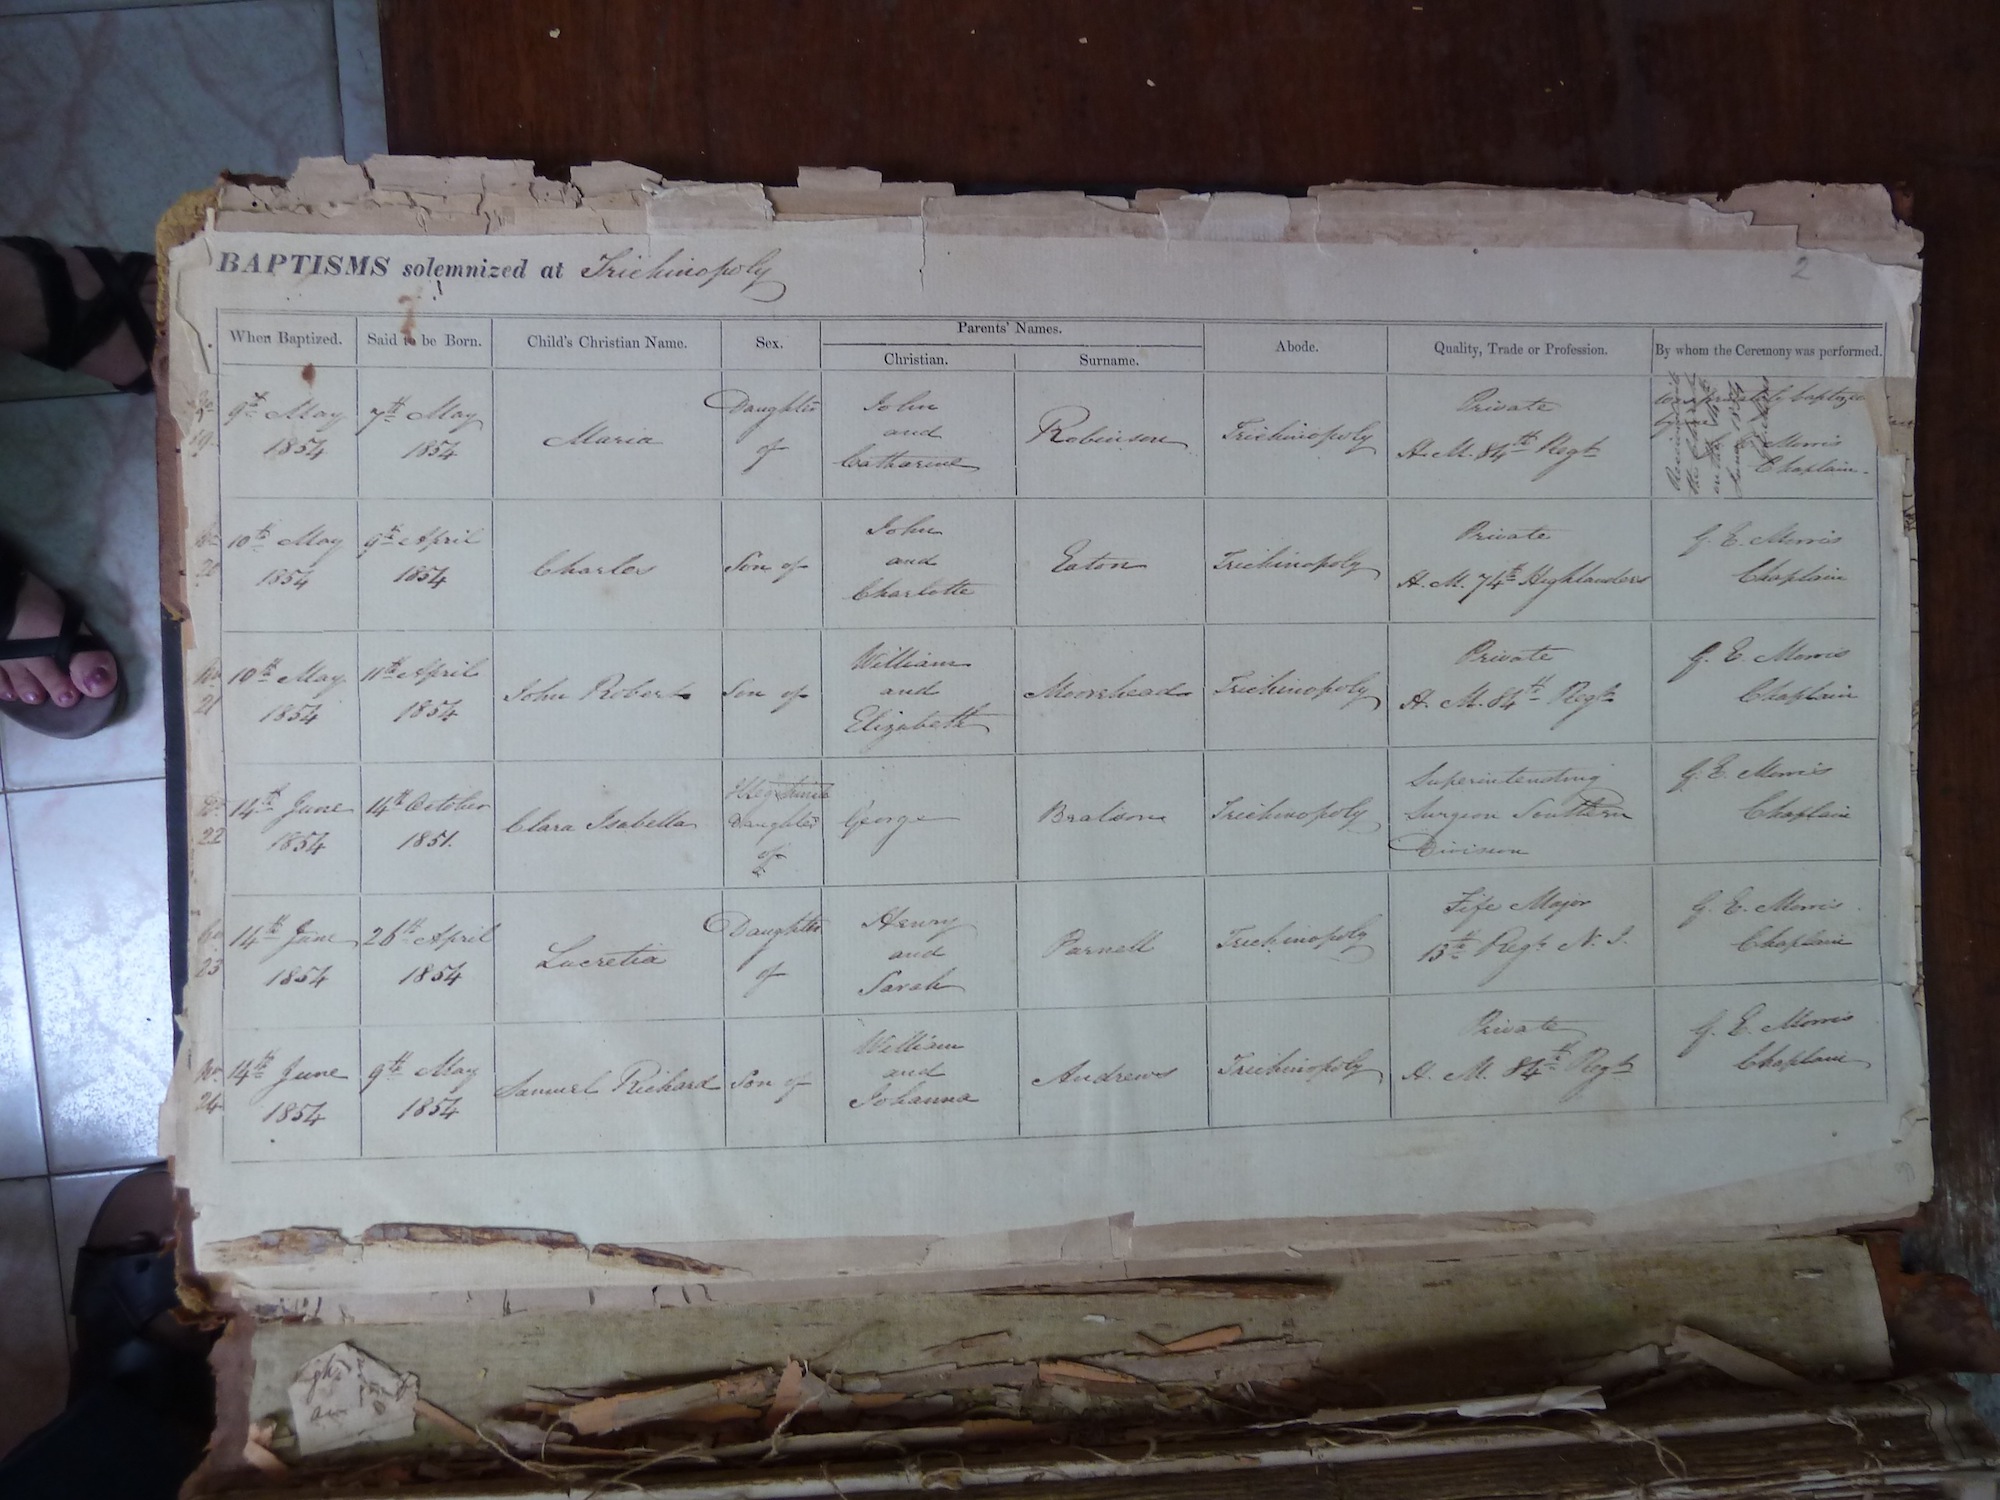 2
BAPTISMS solemnized at Trichinopoly
When Baptized. Said to be Born. Child's Christian Name. Sex. Parents' Names. Abode. Quality, Trade or Profession. By whom the Ceremony was performed.
Christian. Surname.
9th May 7th May Daughter John Private
and
1854 1854 Maria of Robinson Trichinopoly H. M. 84th Regt Morris
19 Catharine Chaplain
10th May 9th April John Private G. E. Morris
and
1854 1854 Charles Son of Eaton Trichinopoly H. M. 74th Highlanders Chaplain
20 Charlotte
10th May 11th April William Private G. E. Morris
and
1854 1854 John Robert Son of Moorehead Trichinopoly H. M. 84th Regt Chaplain
21 Elizabeth
14th June 14th October Superintending G. E. Morris
1854 1851. Clara Isabella Daughter George Trichinopoly Surgeon Southern Chaplain
22 of Division
14th June 26th April Daughter Henry Fife Major G. E. Morris
and
1854 1854 Lucretia of Parnell Trichinopoly 13th Regt N. I. Chaplain
23 Sarah
14th June 9th May William Private G. E. Morris
and
1854 1854 Samuel Richard Son of Andrews Trichinopoly H. M. 84th Regt Chaplain
24 Johanna